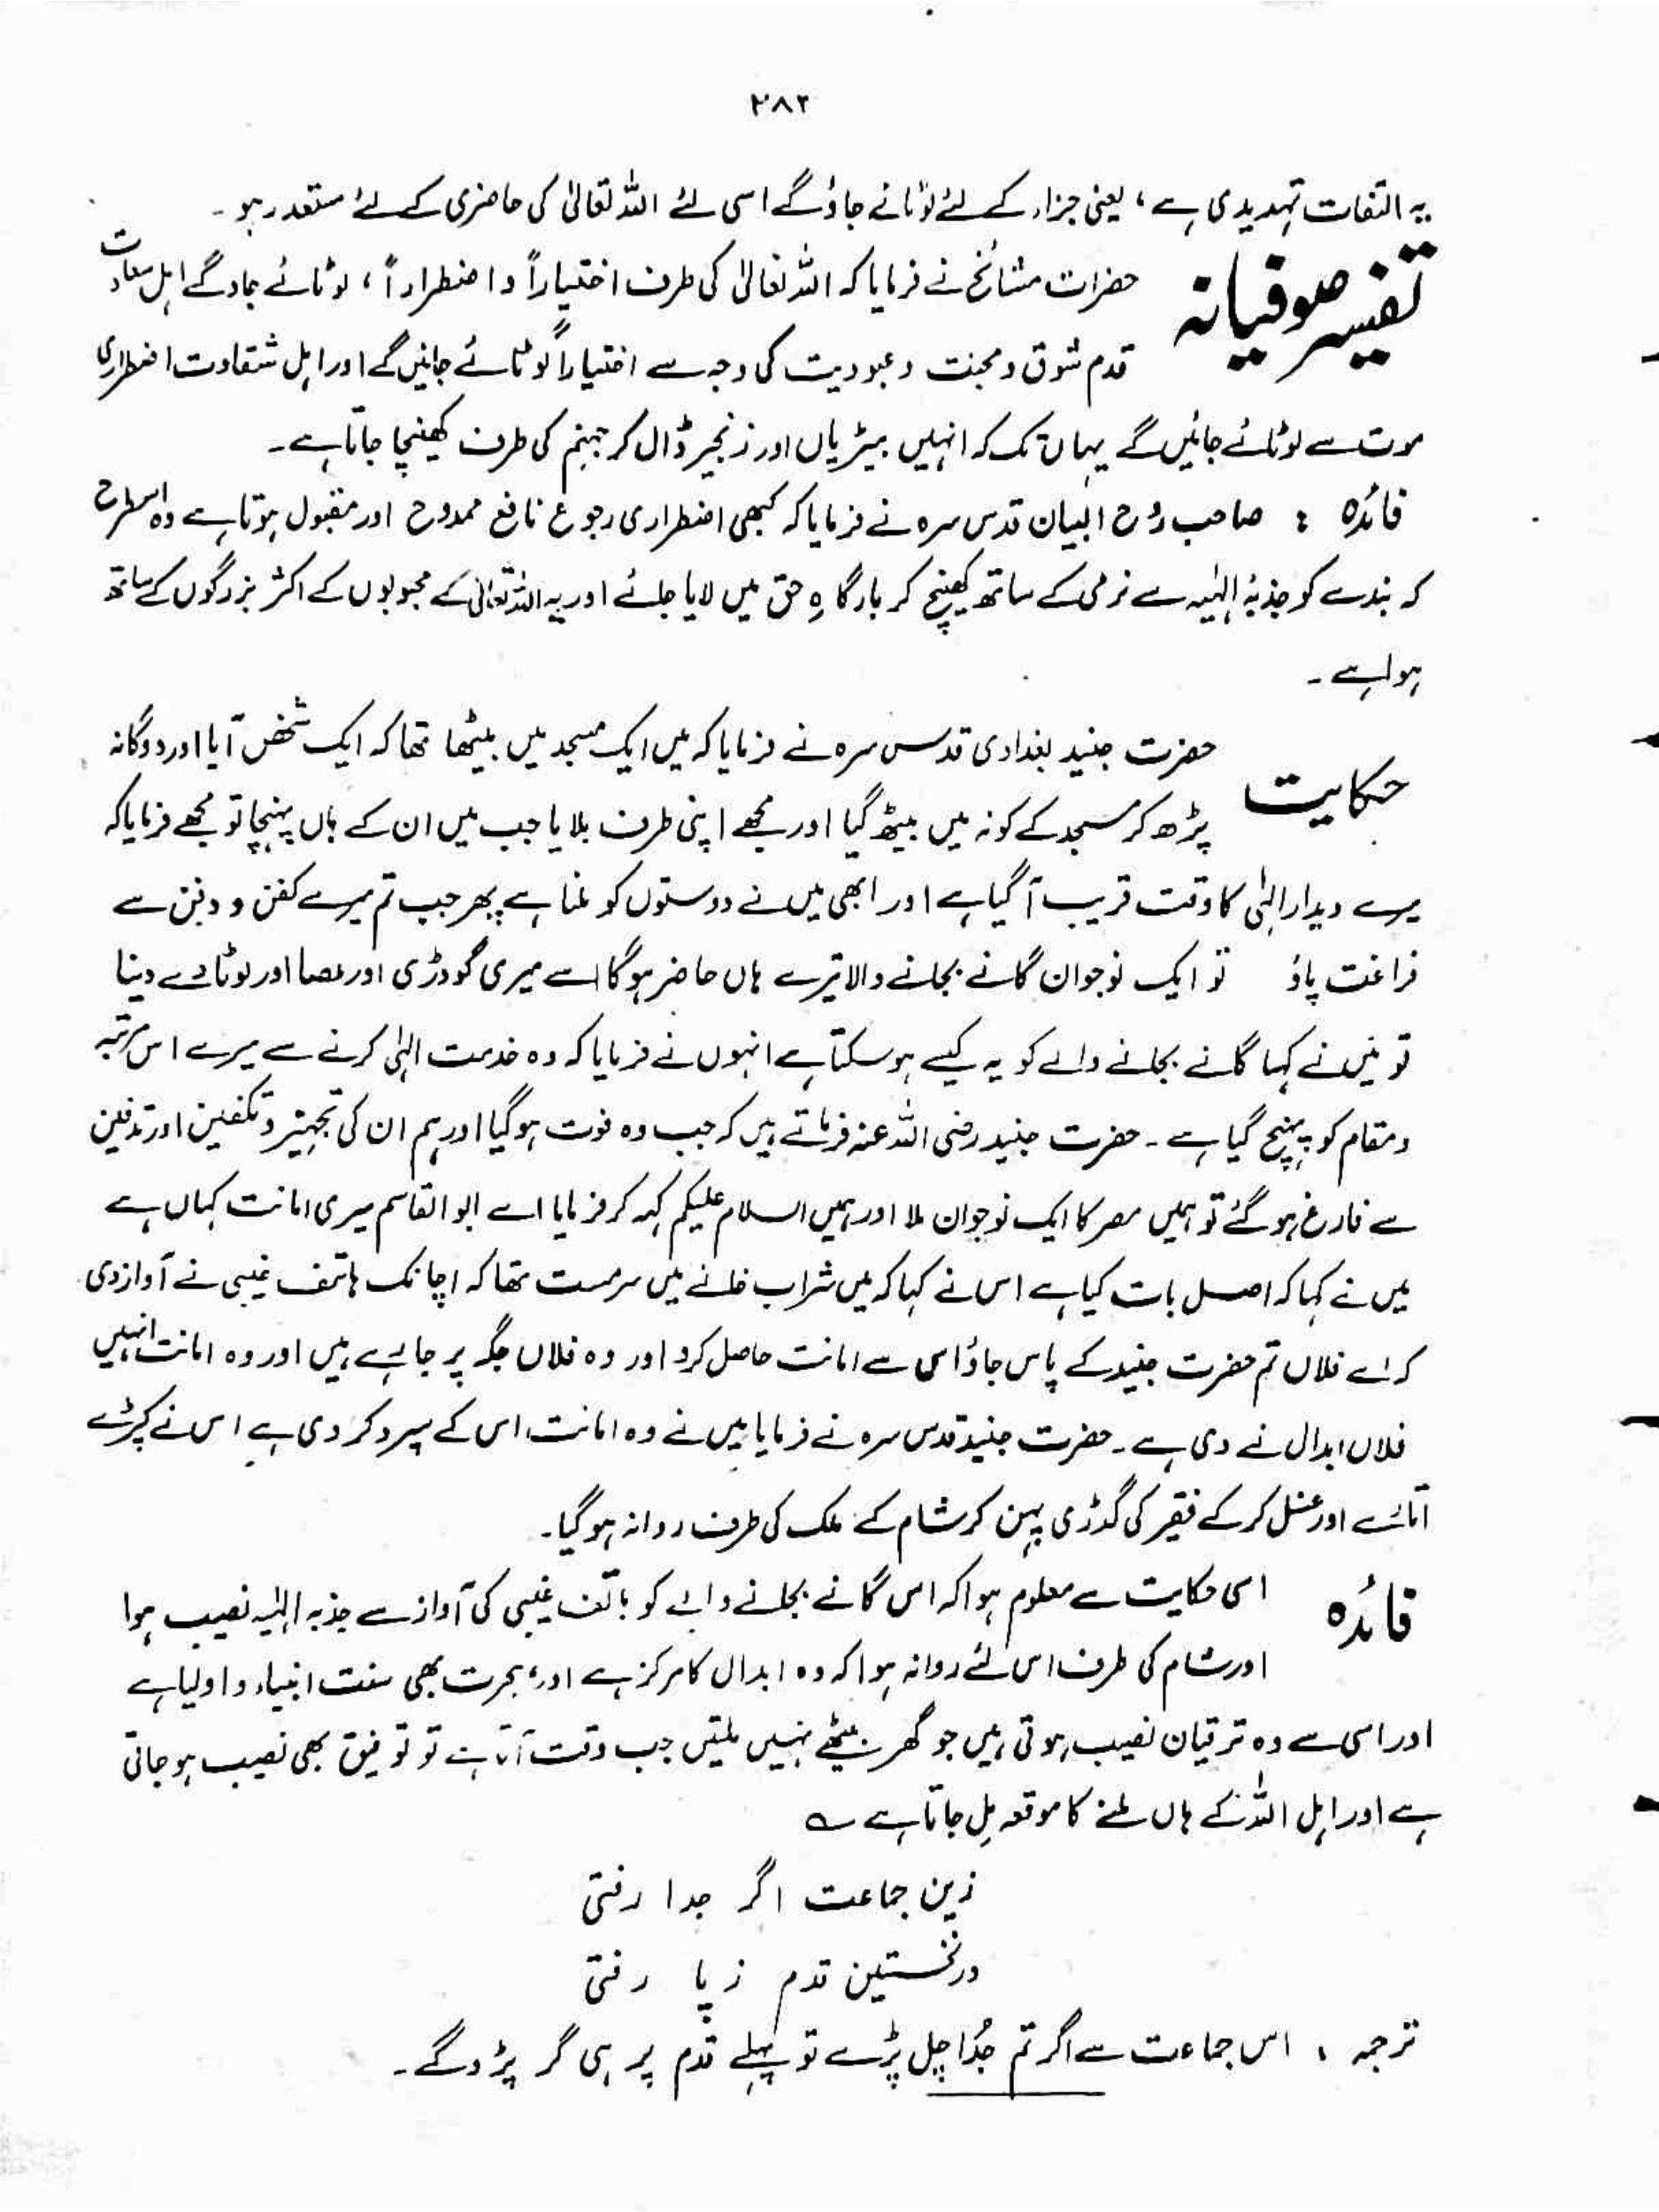 ۲۸۲
یہ التفات تہدیدی ہے، یعنی جزاء کے لئے لوٹائے جاؤ گے اسی لئے اللہ تعالیٰ کی حاضری کے لئے مستعد رہو۔
تفسیر صوفیانہ
حضرات مشائخ نے فرمایا کہ اللہ تعالیٰ کی طرف اختیاراً و اضطراراً، لوٹائے جاؤ گے اہل سعادت
قدم شوق و محبت و عبودیت کی وجہ سے اختیاراً لوٹائے جائیں گے اور اہل شقاوت اضطراری
موت سے لوٹائے جائیں گے یہاں تک کہ انہیں بیڑیاں اور زنجیر ڈال کر جہنم کی طرف کھینچا جاتا ہے۔
فائدہ : صاحب روح البیان قدس سرہ نے فرمایا کہ کبھی اضطراری رجوع نافع ممدوح اور مقبول ہوتا ہے وہ اس طرح
کہ بندے کو جذبۂ الٰہیہ سے نرمی کے ساتھ کھینچ کر بارگاہِ حق میں لایا جائے اور یہ اللہ تعالیٰ کے محبوبوں کے اکثر بزرگوں کے ساتھ
ہوا ہے۔
حکایت
حضرت جنید بغدادی قدس سرہ نے فرمایا کہ میں ایک مسجد میں بیٹھا تھا کہ ایک شخص آیا اور دوگانہ
پڑھ کر مسجد کے کونہ میں بیٹھ گیا اور مجھے اپنی طرف بلایا جب میں ان کے ہاں پہنچا تو مجھے فرمایا کہ
میرے دیدار الٰہی کا وقت قریب آ گیا ہے اور ابھی میں نے دوستوں کو ملنا ہے پھر جب تم میرے کفن و دفن سے
فراغت پاؤ تو ایک نوجوان گانے بجانے والا تیرے ہاں حاضر ہوگا اسے میری گودڑی اور عصا اور لوٹا دے دینا
تو میں نے کہا گانے بجانے والے کو یہ کیسے ہوسکتا ہے انہوں نے فرمایا کہ وہ خدمت الٰہی کرنے سے میرے اس مرتبہ
و مقام کو پہنچ گیا ہے۔ حضرت جنید رضی اللہ عنہ فرماتے ہیں کہ جب وہ فوت ہوگیا اور ہم ان کی تجہیز و تکفین اور تدفین
سے فارغ ہوگئے تو ہمیں مصر کا ایک نوجوان ملا اور ہمیں السلام علیکم کہہ کر فرمایا اے ابوالقاسم میری امانت کہاں ہے
میں نے کہا کہ اصل بات کیا ہے اس نے کہا کہ میں شراب خانے میں سرمست تھا کہ اچانک ہاتف غیبی نے آواز دی
کہ اے فلاں تم حضرت جنید کے پاس جاؤ اس سے امانت حاصل کرو اور وہ فلاں جگہ پر جا رہے ہیں اور وہ امانت انہیں
فلاں ابدال نے دی ہے۔ حضرت جنید قدس سرہ نے فرمایا میں نے وہ امانت اس کے سپرد کر دی ہے اس نے کپڑے
اتارے اور غسل کر کے فقیر کی گدڑی پہن کر شام کے ملک کی طرف روانہ ہوگیا۔
فائدہ
اسی حکایت سے معلوم ہوا کہ اس گانے بجانے والے کو ہاتف غیبی کی آواز سے جذبہ الٰہیہ نصیب ہوا
اور شام کی طرف اس لئے روانہ ہوا کہ وہ ابدال کا مرکز ہے اور ہجرت بھی سنت انبیاء و اولیا ہے
اور اسی سے وہ ترقیان نصیب ہوتی ہیں جو گھر بیٹھے نہیں ملتیں جب وقت آتا ہے تو توفیق بھی نصیب ہو جاتی
ہے اور اہل اللہ کے ہاں ملنے کا موقعہ مِل جاتا ہے ؎
زین جماعت اگر جدا رفتی
درنخستین قدم ز پا رفتی
ترجمہ ، اس جماعت سے اگر تم جُدا چل پڑے تو پہلے قدم پر ہی گر پڑو گے۔